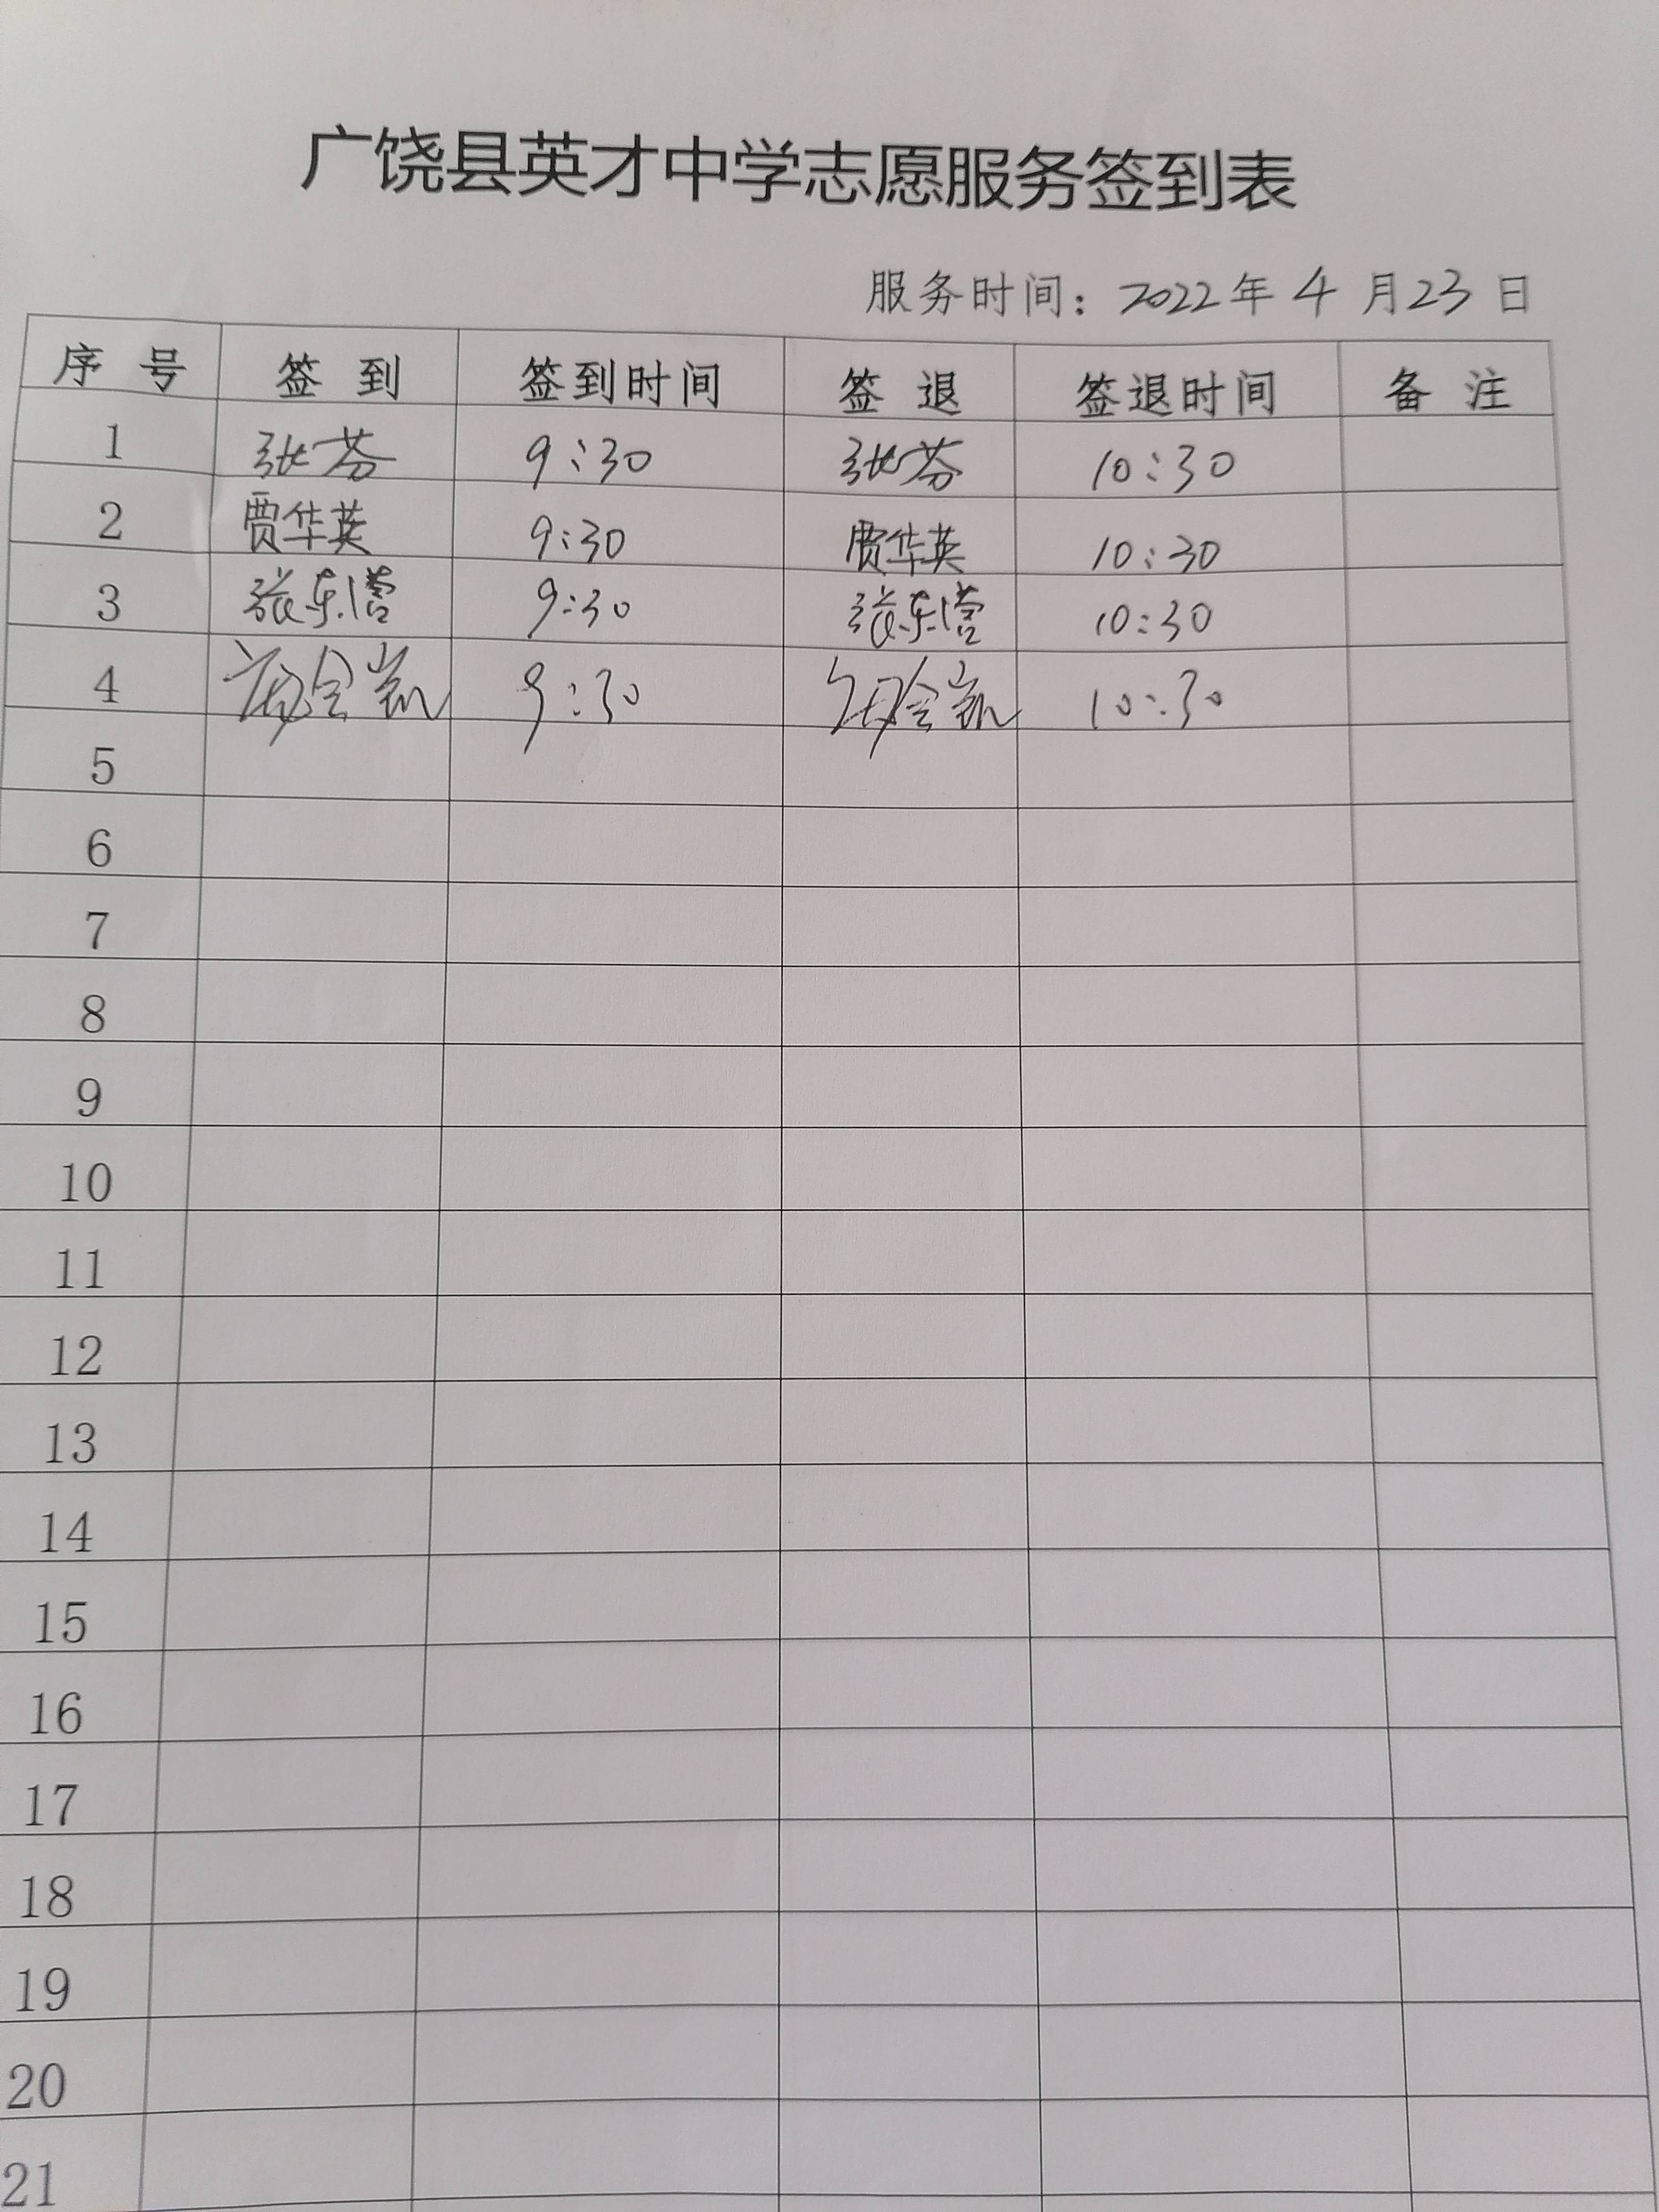 广饶县英才中学志愿服务签到表
服务时间：2022年4月23日
序号 签到 签到时间 签退 签退时间 备注
1 张芬 9:30 张芬 10:30
2 贾华英 9:30 贾华英 10:30
3 张东 9:30 张东 10:30
4 9:30 10:30
5
6
7
8
9
10
11
12
13
14
15
16
17
18
19
20
21